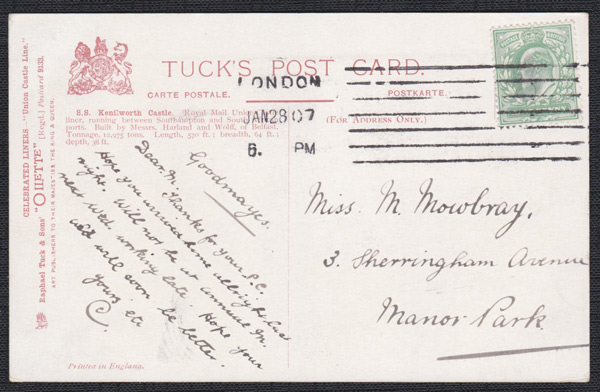 TUCK'S POST CARD.
CARTE POSTALE. POSTKARTE.
(FOR ADDRESS ONLY.)
LONDON
JAN 28 07
6. PM
S.S. Kenilworth Castle. Royal Mail Union
liner, running between Southampton and South
ports. Built by Messrs. Harland and Wolff, of Belfast.
Tonnage, 12,975 tons. Length, 570 ft.; breadth, 64 ft.;
depth, 38 ft.
Goodmayes.
Dear M. Thanks for your P.C.
Hope you arrived home all right last
night. Will not be at annual m.
next week, working late. Hope your
cold will soon be better.
Yours etc
C.
Miss. M. Mowbray,
3. Sherringham Avenue
Manor Park
CELEBRATED LINERS.—"Union Castle Line."
"OILETTE" [Regd.] Postcard 9133.
Raphael Tuck & Sons'
ART PUBLISHERS TO THEIR MAJESTIES THE KING & QUEEN.
Printed in England.